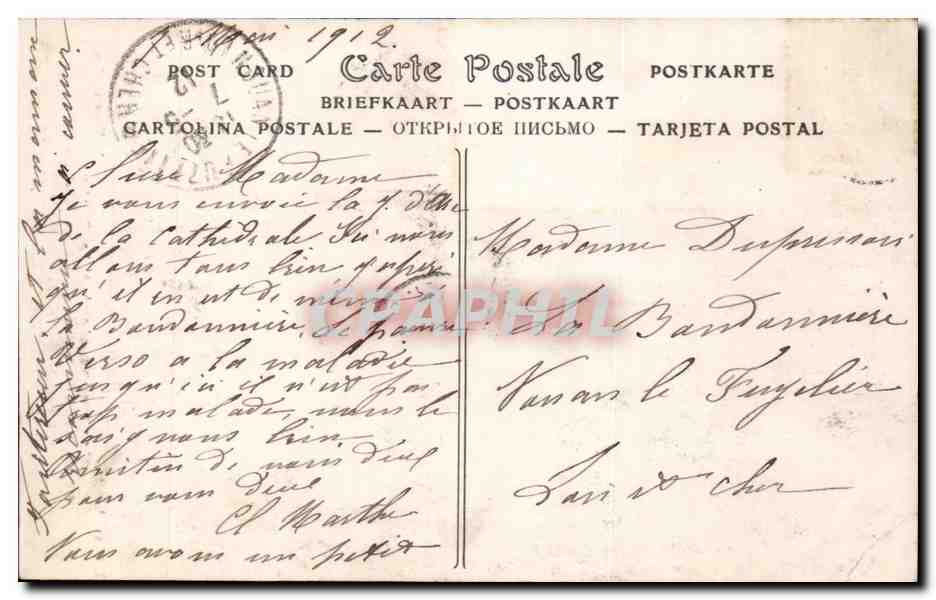 7 Mai 1912.
POST CARD Carte Postale POSTKARTE
BRIEFKAART — POSTKAART
CARTOLINA POSTALE — ОТКРЫТОЕ ПИСЬМО — TARJETA POSTAL
Chere Madame
Je vous envoie la
de la Cathédrale Ici nous
allons tous bien j'espère
qu'il en est de même à
la Bandonnière, le pauvre
Verso a la maladie
jusqu'ici il n'est pas
trop malade, nous le
soignons bien
Amitiés de nous deux
pour vous deux
Cl Marthe
Vous avons un petit
Madame Dupressoir
La Bandonnière
Vouars le Fuzelier
Loir et cher
CPAPHIL